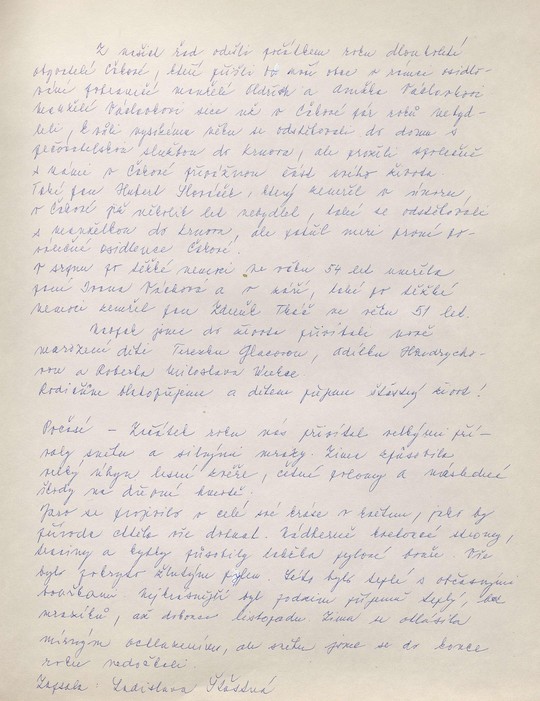 Z našich řad odešli počátkem roku dlouholetí
obyvatelé Cákové, kteří přišli do naší obce v rámci osidlo-
vání pohraničí manželé Oldřich a Anežka Václavkovi
Manželé Václavkovi sice už v Cákové pár roků nebyd-
leli, kvůli vysokému věku se odstěhovali do domu s
pečovatelskou službou do Krnova, ale prožili společně
s námi v Cákové převážnou část svého života.
Také pan Hubert Slováček, který zemřel v únoru,
v Cákové již několik let nebydlel, také se odstěhovali
s manželkou do Krnova, ale patřil mezi první po-
válečné osídlence Cákové.
V srpnu po těžké nemoci ve věku 54 let umřela
paní Ivana Vácková a v září, také po těžké
nemoci zemřel pan Zdeněk Tkáč ve věku 51 let.
Naopak jsme do života přivítali nově
narozené děti Terezku Glacovou, Adélku Handrycho-
vou a Roberta Miloslava
Rodičům blahopřejeme a dětem přejem šťastný život!
Počasí – Začátek roku nás přivítal velkými pří-
valy sněhu a silnými mrazy. Zima způsobila
velký úhyn lesní zvěře, četné polomy a následné
škody na dřevní hmotě.
Jaro se projevilo v celé své kráse v květnu, jako by
příroda chtěla vše dohnat. Nádherně kvetoucí stromy,
traviny a kytky působily taková pylové bouře. Vše
bylo pokryto žlutým pylem. Léto bylo teplé s občasnými
bouřkami. Nejkrásnější byl podzim příjemně teplý, bez
mrazíků, až dokonce listopadu. Zima se ohlásila
mírným ochlazením, ale sněhu jsme se do konce
roku nedočkali.
Zapsala: Ladislava Šťastná